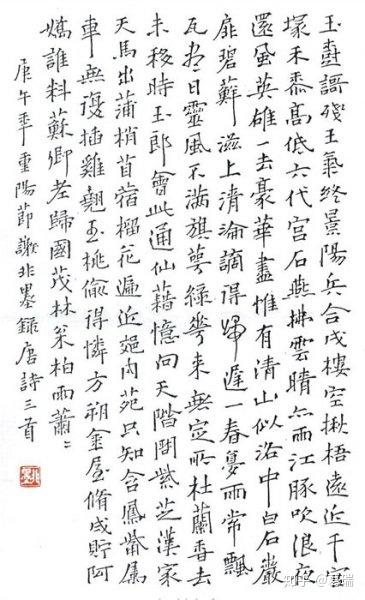 玉樹謌殘王氣終景陽兵合戍樓空楸梧遠近千官
塚禾黍高低六代宮石燕拂雲晴亦雨江豚吹浪夜
還風英雄一去豪華盡惟有青山似洛中白石巖
扉碧蘚滋上清淪謫得歸遲一春夢雨常飄
瓦盡日靈風不滿旗萼綠華來無定所杜蘭香去
未移時玉郎會此通仙籍憶向天階問紫芝漢家
天馬出蒲梢苜蓿榴花遍近郊內苑只知含鳳觜屬
車無復插雞翹玉桃偷得憐方朔金屋脩成貯阿
嬌誰料蘇卿老歸國茂林枩柏雨蕭〻
庚午年重陽節謝非墨錄唐詩三首
非墨
知乎